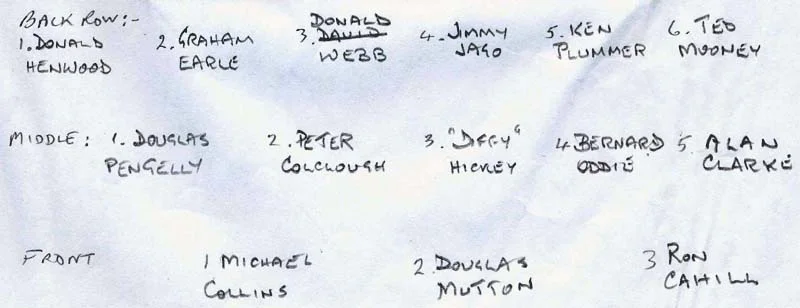 BACK ROW:-
DONALD
1. DONALD 2. GRAHAM 3. DAVID 4. JIMMY 5. KEN 6. TED
HENWOOD EARLE WEBB JAGO PLUMMER MOONEY
MIDDLE: 1. DOUGLAS 2. PETER 3. "DIFFY" 4. BERNARD 5. ALAN
PENGELLY COLCLOUGH HICKEY ODDIE CLARKE
FRONT 1 MICHAEL 2. DOUGLAS 3 RON
COLLINS MUTTON CAHILL